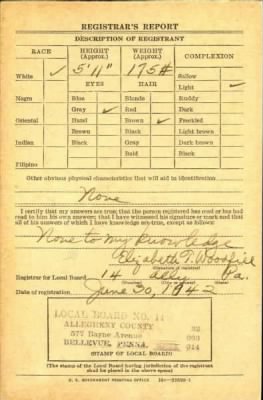 REGISTRAR'S REPORT
DESCRIPTION OF REGISTRANT
RACE HEIGHT (Approx.) WEIGHT (Approx.) COMPLEXION
5' 11" 175#
White ✓ EYES HAIR Sallow
Light ✓
Negro Blue Blonde Ruddy
Gray ✓ Red Dark
Oriental Hazel Brown ✓ Freckled
Brown Black Light brown
Indian Black Gray Dark brown
Bald Black
Filipino
Other obvious physical characteristics that will aid in identification
None
I certify that my answers are true; that the person registered has read or has had
read to him his own answers; that I have witnessed his signature or mark and that
all of his answers of which I have knowledge are true, except as follows:
None to my knowledge
Elizabeth T. Woodfill
(Signature of registrar)
Registrar for Local Board 14 Ally Pa.
(Number) (City or county) (State)
Date of registration June 30, 1942
LOCAL BOARD NO. 14
ALLEGHENY COUNTY 32
577 Bayne Avenue 003
BELLEVUE, PENNA. 014
(STAMP OF LOCAL BOARD)
(The stamp of the Local Board having jurisdiction of the registrant
shall be placed in the above space)
U. S. GOVERNMENT PRINTING OFFICE